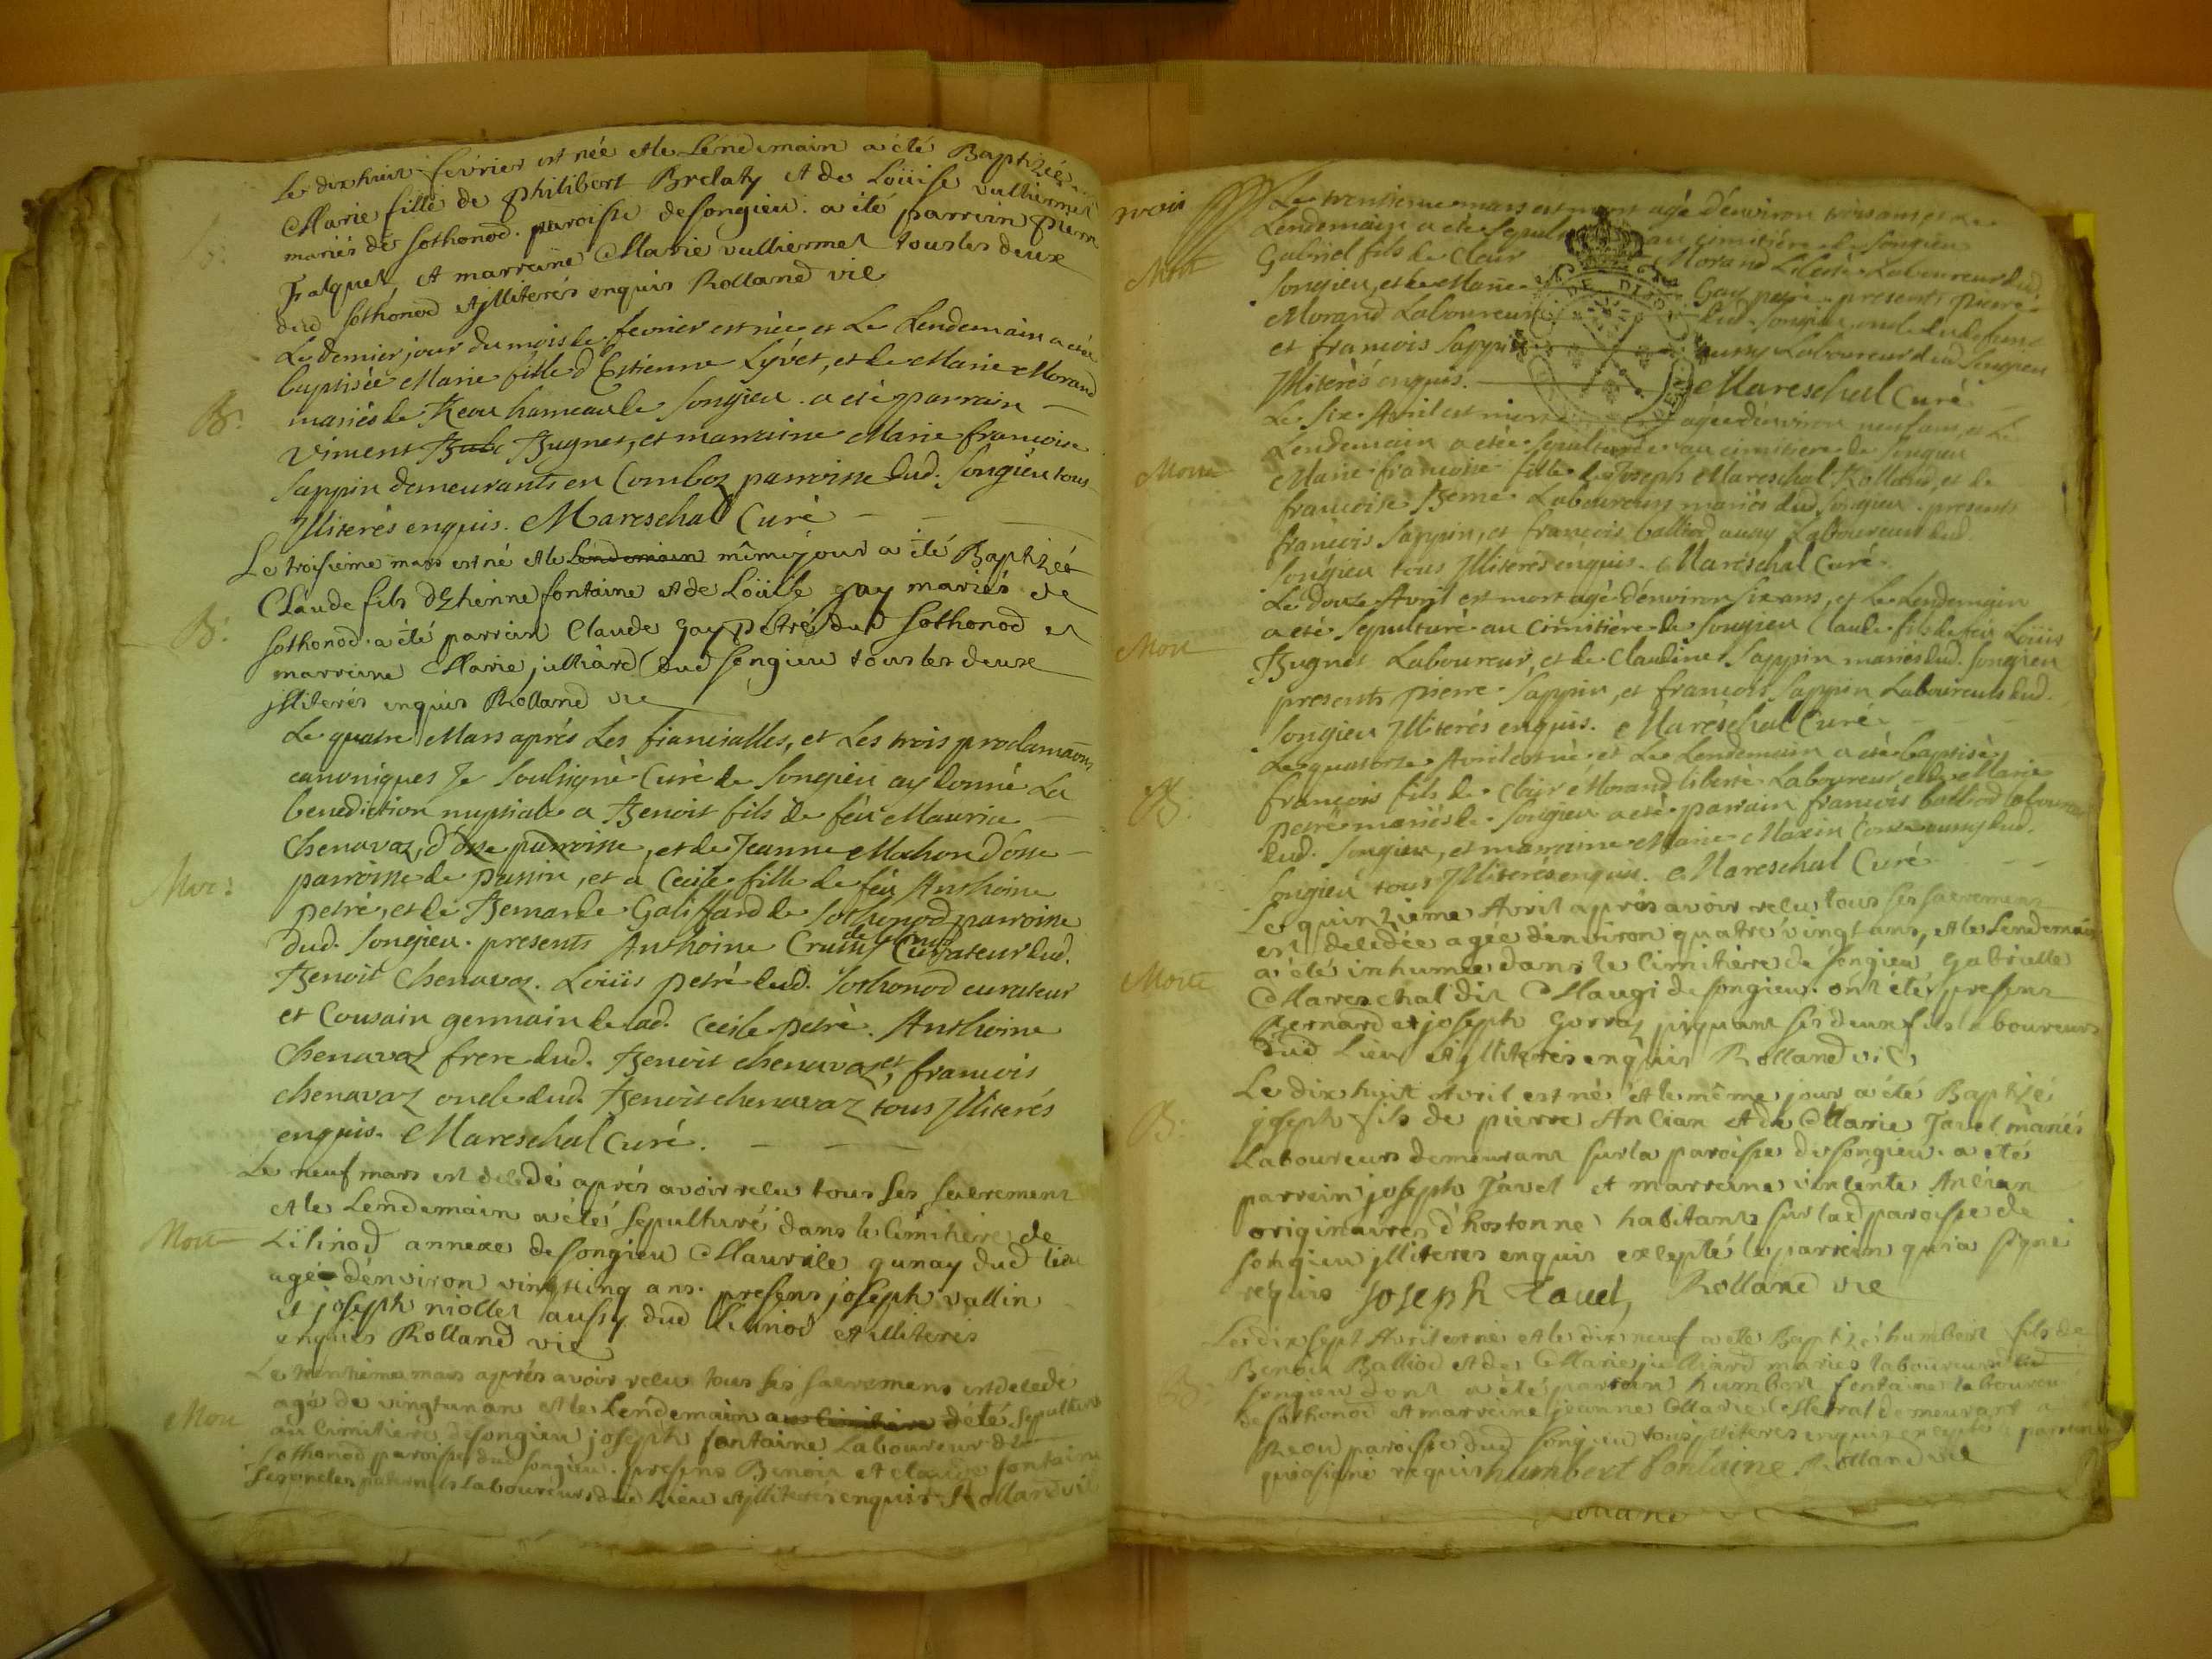 Le dix huit fevrier est née et le Lendemain a été Baptizée
Marie fille de philibert Brelaty et de Loüise vulliermet
mariés de Sothonod. paroisse de songieu. a été parrain pierre
et marraine Marie vulliermet tous les deux
dud Sothonod et jlliterés enquis Rolland vic
Le dernier jour du mois de fevrier est née et Le Lendemain a eté
B.
baptisée Marie fille d'Estienne Lyvet, et de Marie Morand
mariés de Reou hameau de Songieu. a eté parrain
Viment Bugnet, et marraine Marie francoise
Sappin demeurants en Comboz parroisse dud. Songieu tous
Jlliterés enquis. Mareschal Curé
Le troisieme mars est né et le Lendemain même jour a été Baptizée
Claude fils d'Ethienne fontaine et de Loüise gay mariés de
B.
Sothonod. a été parrain Claude gay petré dud Sothonod et
marraine Marie julliard dud songieu tous les deux
jlliterés enquis Rolland vic
Le quatre Mars aprés Les fiancialles, et Les trois proclamaõns
canoniques Je Soussigné Curé de Songieu ay donné La
benediction nuptiale a Benoit fils de feu Maurice
Chenavaz, d'osse parroisse, et de Jeanne Mochon d'osse
Mar:
parroisse de passin, et a Cecile fille de feu Anthoine
petré, et de Bernarde Galiffard de Sothonod parroisse
dud. Songieu. presents Anthoine Crussy Curateur dud.
Benoit Chenavaz. Loüis petré dud. Sothonod curateur
et Cousain germain de lad. Cecile petré. Anthoine
Chenavaz frere dud. Benoit chenavaz, et francois
chenavaz oncle dud. Benoit chenavaz tous Jlliterés
enquis. Mareschal Curé.
Le neuf mars est decedé aprés avoir recu tous ses sacrement
et le Lendemain a été sepulturé dans le Cimitierre de
Mort
Lilinod annexe de songieu Maurice gunay dud lieu
agé d'environ vingt cinq ans. presens joseph vallin
et joseph niollet aussy dud Lilinod et illiterés
enquis Rolland vic
Le trentieme mars aprés avoir recu tous ses sacremens est decedé
agé de vingt un an et le Lendemain au Cimitiere a été sepulturé
Mort
au Cimitiere de songieu joseph fontaine Laboureur de
Sothonod paroisse dud songieu. presens Benoit et claude fontaine
ses oncles paternels Laboureurs dud Lieu et jlliterés enquis Rolland vic
Le trentieme mars est mort agé d'environ trois ans, et Le
Lendemain a eté au cimitiére de Songieu
Mort
Gabriel fils de Clair Morand Liberté Laboureur dud
Songieu, et de Marie Gay petré presents pierre
Morand Laboureur dud. Songieu oncle du defunt
et francois Sappin aussy Laboureur dud Songieu
Jlliterés enquis. Mareschal Curé
Le Six Avril est morte agée d'environ neuf ans, et Le
Lendemain a eté Sepulturée au cimitiere de Songieu
Morte
Marie francoise fille de Joseph Mareschal Rolland, et de
francoise Beme Laboureurs mariés dud. Songieu. presents
francois Sappin, et francois balliod aussy Laboureurs dud.
Songieu tous Jlliterés enquis. Mareschal Curé.
Le douze Avril est mort agé d'environ Six ans, et Le Lendemain
a eté Sepulturé au cimitiére de Songieu Claude fils de feu Loüis
Mort
Bugnet Laboureur, et de Claudine Sappin mariés dud. Songieu
presents pierre Sappin, et francois Sappin Laboureurs dud.
Songieu Jlliterés enquis. Mareschal Curé
Le quatorze Avril est né et Le Lendemain a eté baptisé
B.
francois fils de Clair Morand liberté Laboureur, et de Marie
petré mariés de Songieu a eté parrain francois balliod Laboureur
dud. Songieu, et marraine Marie Maxin aussy dud.
Songieu tous Jlliterés enquis. Mareschal Curé
Le quinzieme Avril aprés avoir recu tous ses sacremens
est decedée agée d'environ quatre vingt ans, et le Lendemain
a été inhumée dans le Cimitierre de songieu gabrielle
Morte
Mareschal dit Maugi de songieu. ont été presens
Bernard et joseph Gorraz piquant ses deux fils laboureurs
dud Lieu et jlliterés enquis Rolland vic
Le dix huit Avril est né et le même jour a été Baptizé
B.
joseph fils de pierre Ancian et de Marie Javel mariés
Laboureurs demeurant sur la paroisse de songieu. a été
parrain joseph Javel et marraine Ancian
originaires d'hostonne habitants sur lad paroisse de
songieu jlliteres enquis excepté le parrain qui a signé
requis JOSEPH Javel Rolland vic
Le dix sept Avril est né et le dix neuf a été Baptizé humbert fils de
B.
Benoit Balliod et de Marie julliard mariés laboureurs dud
songieu dont a été parrain humbert fontaine laboureur
de Sothonod et marraine jeanne Marie demeurant a
Reou paroisse dud songieu tous jlliteres enquis excepté le parrain
qui a signé requis humbert fontaine Rolland vic